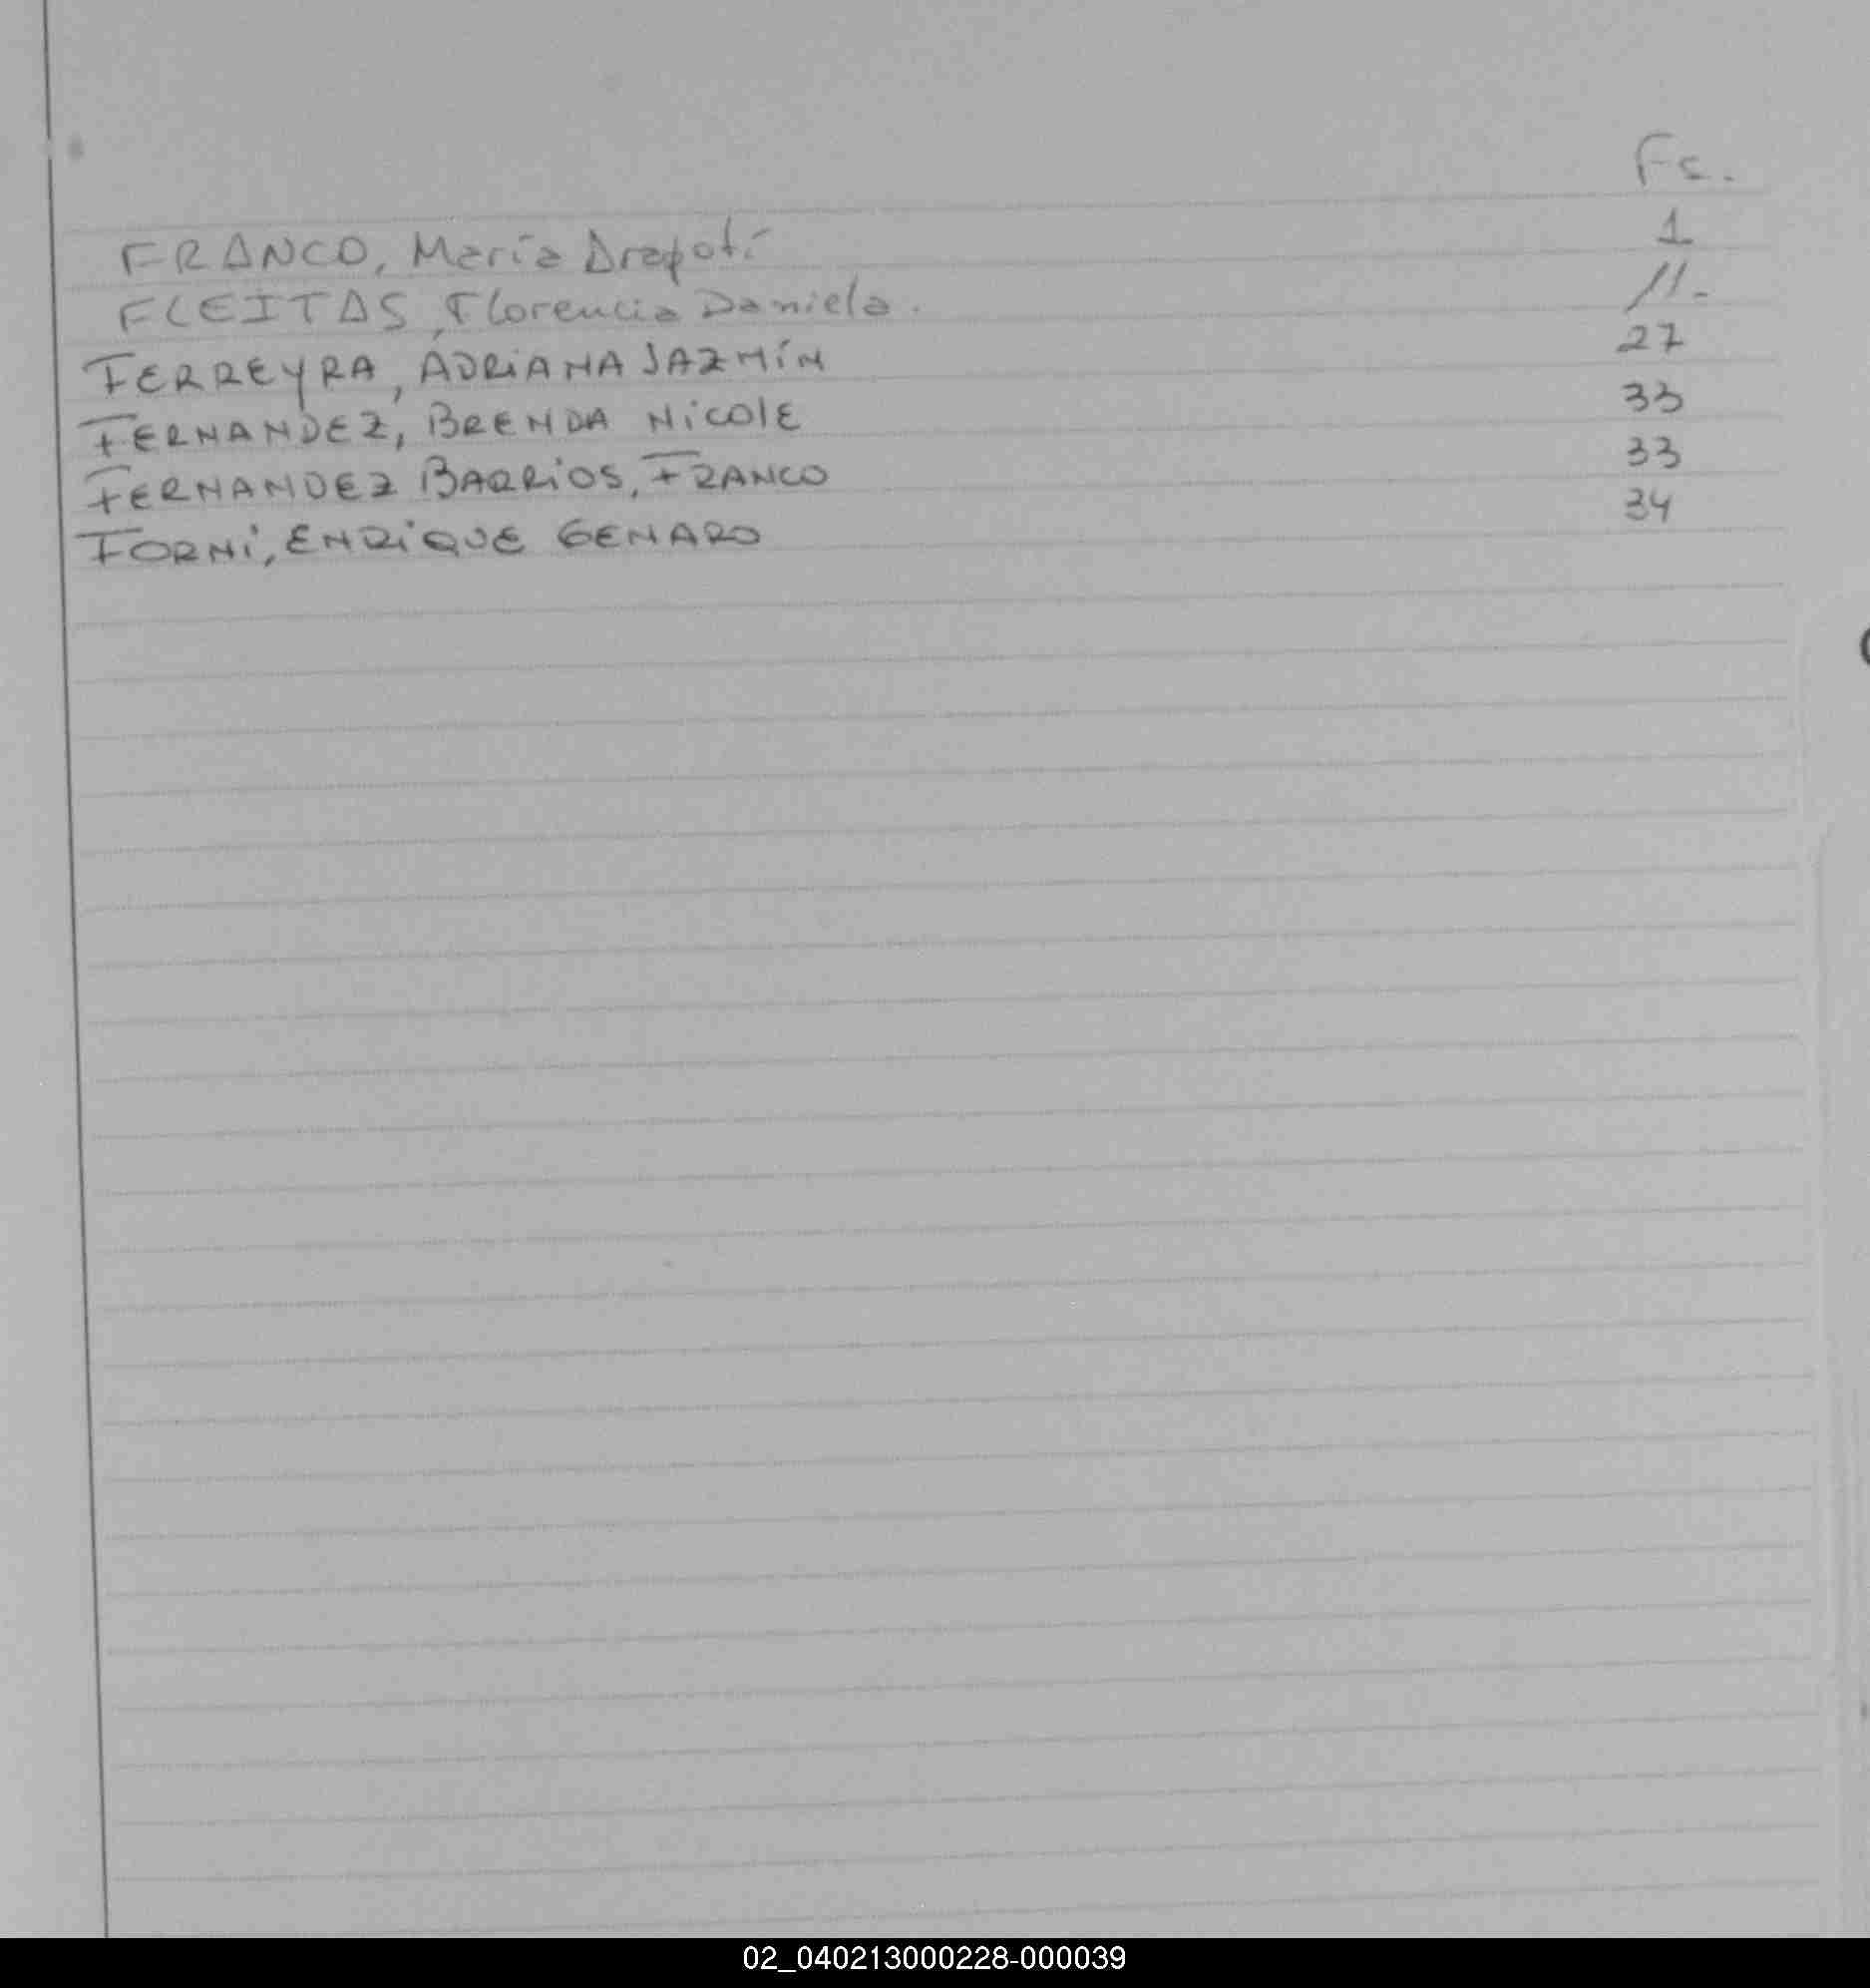 Fs.
FRANCO, María Arapotí 1
FLEITAS, Florencia Daniela. 11.
FERREYRA, ADRIANA JAZMÍN 27
FERNANDEZ, BRENDA NICOLE 33
FERNANDEZ BARRIOS, FRANCO 33
FORNI, ENRIQUE GENARO 34
02_040213000228-000039